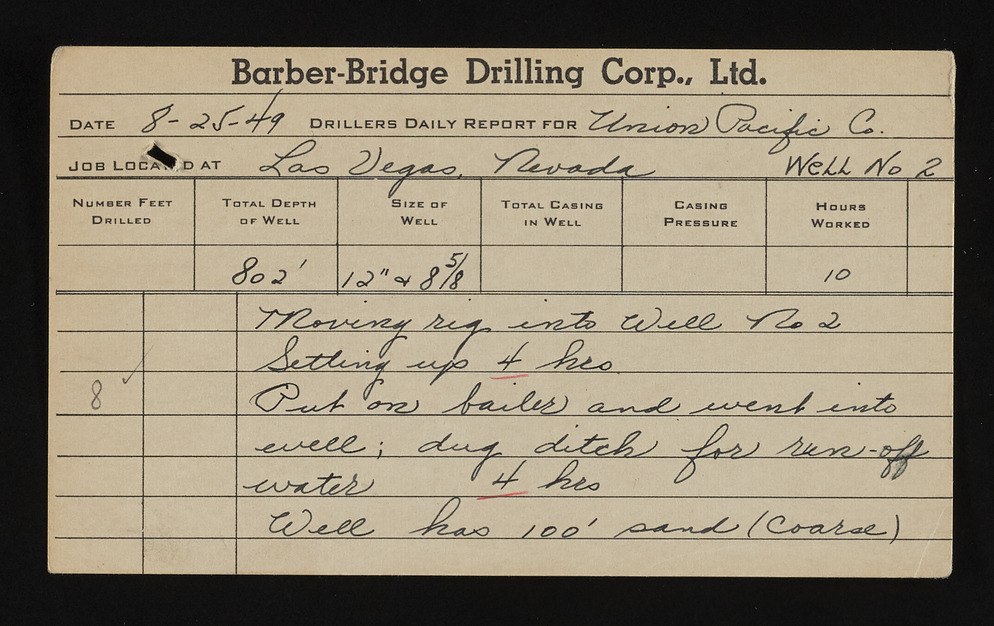 Barber-Bridge Drilling Corp., Ltd.
DATE 8-25-49 DRILLERS DAILY REPORT FOR Union Pacific Co.
JOB LOCATED AT Las Vegas, Nevada Well No 2
NUMBER FEET DRILLED TOTAL DEPTH OF WELL SIZE OF WELL TOTAL CASING IN WELL CASING PRESSURE HOURS WORKED
802' 12" & 8 5/8 10
Moving rig into Well No 2
Setting up 4 hrs
8 Put on bailer and went into
well; dug ditch for run-off
water 4 hrs
Well has 100' sand (coarse)